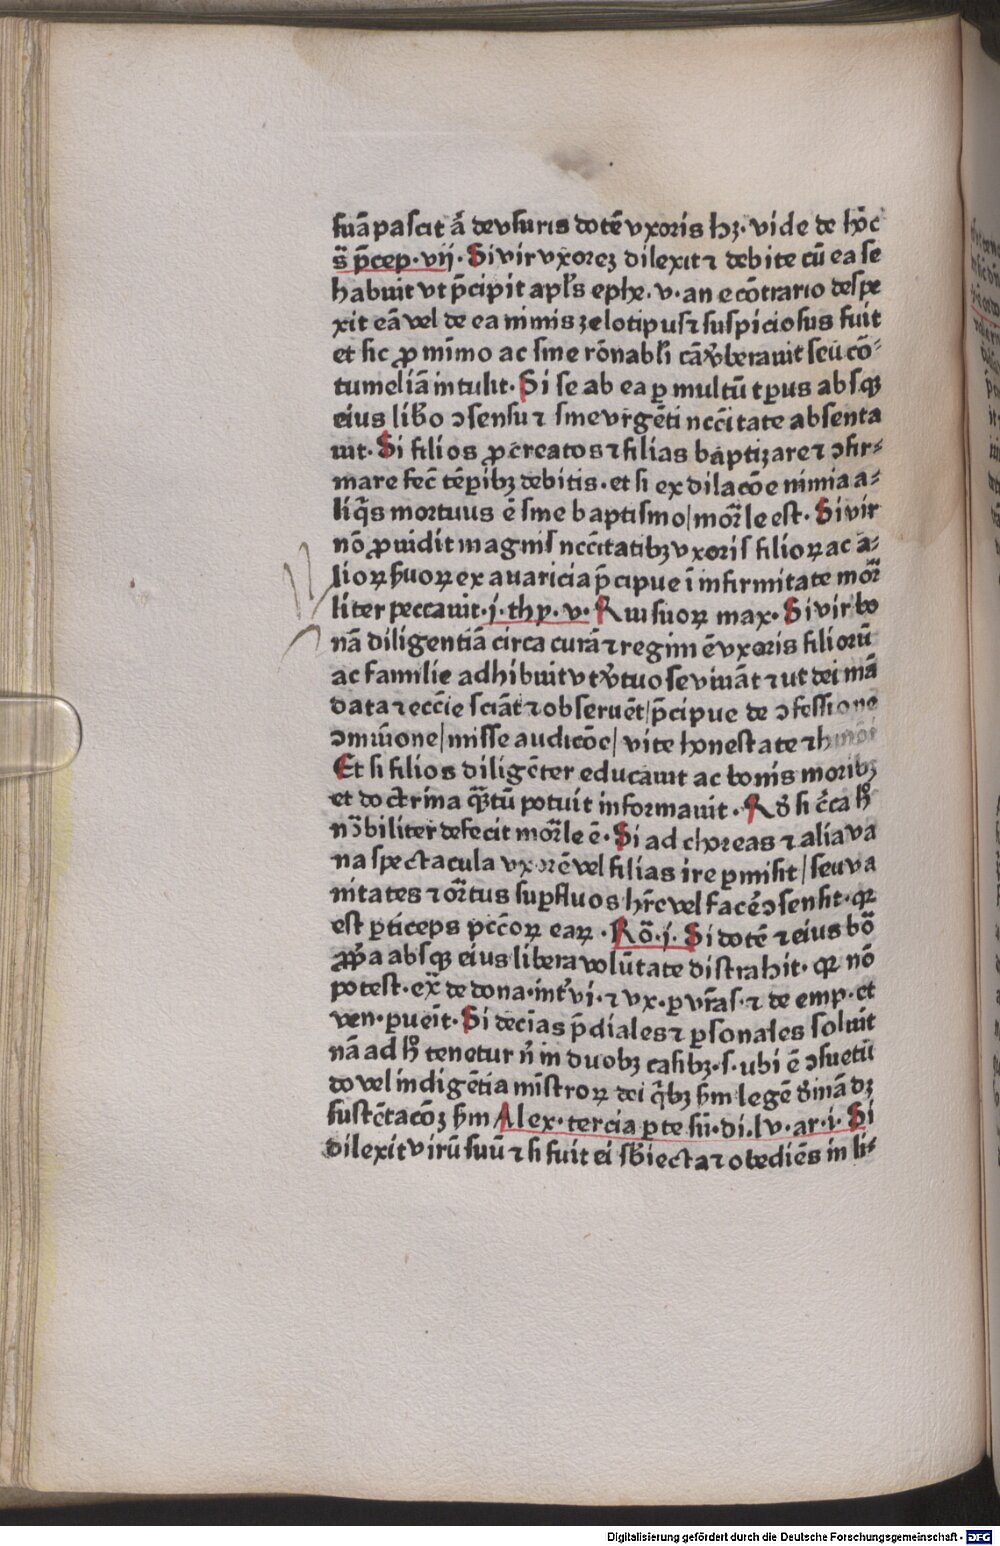 suā pascit aut de vsuris dotē vxoris hꝫ. vide de hͦ c
s̄ p̄cep. vij. Si vir vxoreꝫ dilexit ⁊ debite cū ea se
habuit vt p̄cipit apl's ephe. v. an e cōtrario despe
xit eā vel de ea nimis zelotipus ⁊ suspiciosus fuit
et sic ꝓ mīmo ac sine rōnabli cā v̄berauit seu cō-
tumeliā intulit. Si se ab ea ꝑ multū tꝑus absqꝫ
eius libͦo ꝯsensu ⁊ sine vrgēti nccītate absenta
uit. Si filios ꝓcreatos ⁊ filias baptizare ⁊ ꝯfir-
mare fec̄ tēꝑibꝫ debitis. et si ex dilacōe nimia a-
liq̄s mortuus ē sine baptismo/ mor̄le est. Si vir
nō ꝓuidit magnis nccītatibꝫ vxoris filioꝝ ac a-
lioꝝ suoꝝ ex auaricia p̄cipue ī infirmitate mor̄
liter peccauit. j. thy. v. Rui suoꝝ max. Si vir bo
nā diligentiā circa curā ⁊ regimē vxoris filiorū
ac familie adhibuit vt v̄tuose viuāt ⁊ ut dei mā
data ⁊ eccīe sciāt ⁊ obseruēt/ p̄cipue de ꝯfessione
ꝯmūione/ misse audicōe/ vite honestate ⁊ hmōi
Et si filios diligēter educauit ac bonis moribꝫ
et doctrina qꝫtū potuit informauit. Rͦ si c̄ca hͦ
nōbiliter defecit mor̄le ē. Si ad choreas ⁊ alia va
na spectacula vxorē vel filias ire ꝑmisit/ seu va
nitates ⁊ or̄tus suꝑfluos hr̄e vel facē ꝯsensit. qꝛ
est ꝑticeps pccōꝝ eaꝝ. Rō. j. Si dotē ⁊ eius bō
ꝓp̄a absqꝫ eius libera volūtate distrahit. qꝛ nō
potest. ex̄ de dona. int' vi. ⁊ vx. ꝑ vr̄as. ⁊ de emp. et
ven. ꝑueīt. Si decīas p̄diales ⁊ ꝑsonales soluit
nā ad hͦ tenetur n̄ in duobꝫ casibꝫ. s. ubi ē ꝯsuetū
do vel indigētia mīstroꝝ dei q̄bꝫ sm̄ legē d̄inā dꝫ
sustētacōꝫ sm̄ Alex. tercia ꝑte sūi. di. lv. ar. i. Si
dilexit virū suū ⁊ si fuit ei sb̄iecta ⁊ obediēs in li-
Digitalisierung gefördert durch die Deutsche Forschungsgemeinschaft - DFG